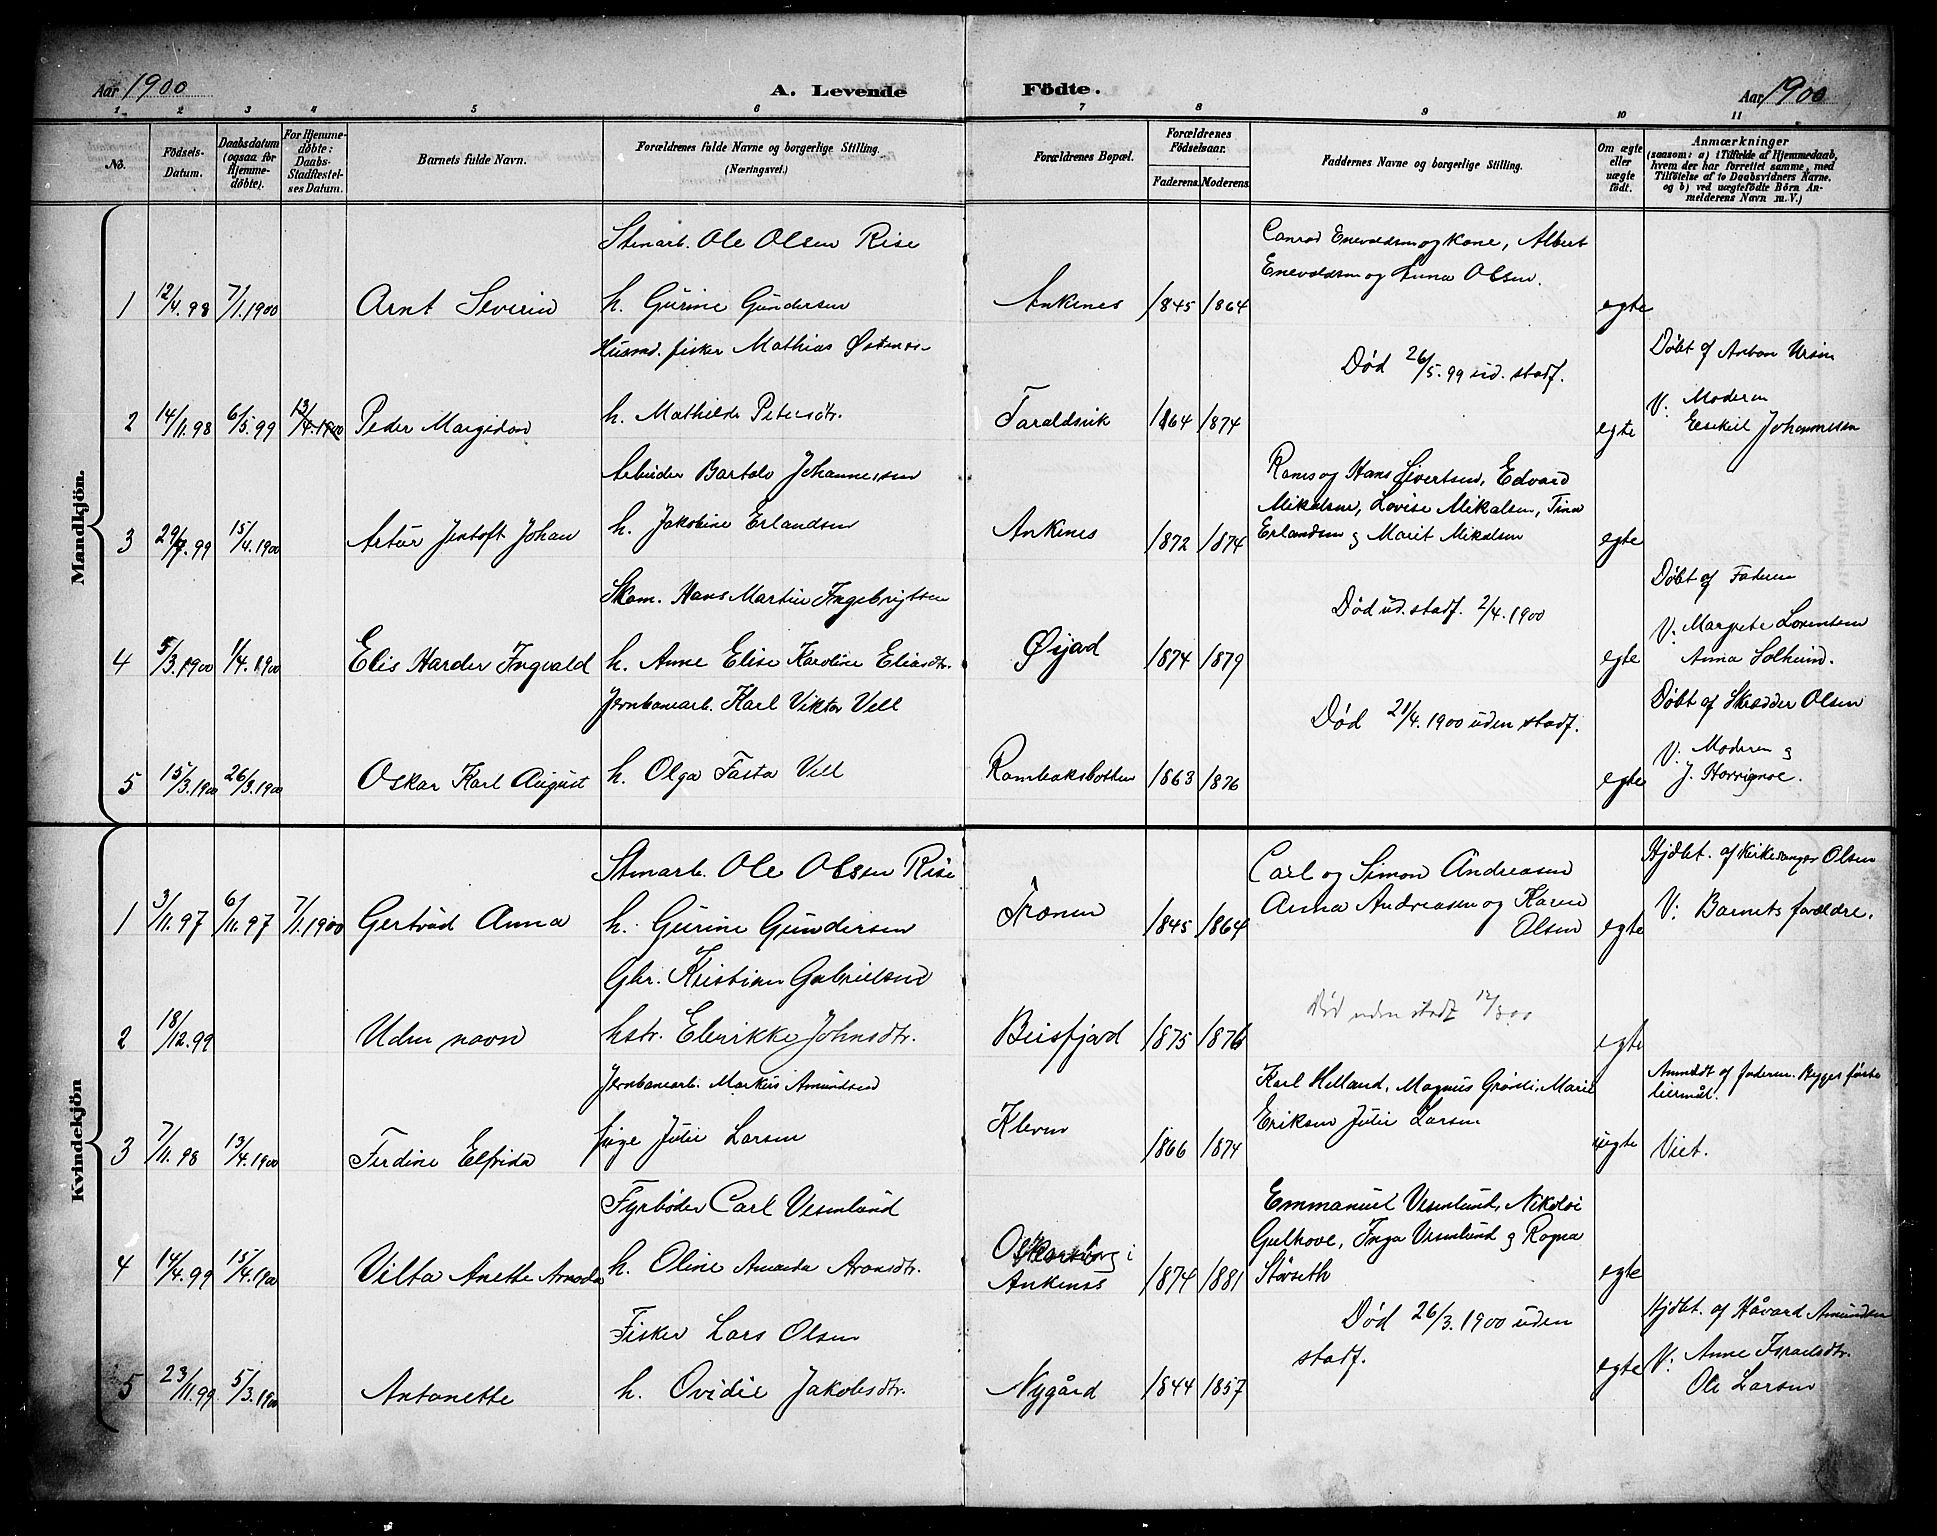 Aar 1900
A. Levende Födte.
Aar 1900
1 2 3 4 5 6 7 8 9 10 11
No.
Födsels-Datum.
Daabsdatum (ogsaa for Hjemme-döbte).
For Hjemme-döbte: Daabs-Stadfæstel-ses Datum.
Barnets fulde Navn.
Forældrenes fulde Navne og borgerlige Stilling. (Næringsvei.)
Forældrenes Bopæl.
Forældrenes Födselsaar.
Faderens. Moderens.
Faddernes Navne og borgerlige Stilling.
Om ægte eller uægte födt.
Anmærkninger
(saasom: a) i Tilfælde af Hjemmedaab,
hvem der har forrettet samme, med
Tilföielse af to Daabsvidners Navne.
og b) ved uægtefödte Börn An-
melderens Navn m. V.)
Mandkjön.
Stenarb. Ole Olsen Rise
Conrad Enevoldsen og kone, Albert
Enevoldsen og Anna Olsen.
1 12/4.98 7/1.1900 Arnt Severin h. Gurine Gundersen Ankenes 1845 1864 egte
Husmd. fisker Mathias
Død 26/5.99 ud. stadf.
Døbt af Anton Ursin
2 14/11.98 6/5.99 13/4.1900 Peder Margido h. Mathilde Petersdtr. Taraldsvik 1864 1874 egte V: Moderen
Esekiel Johannessen
Arbeider Bartolo Johannessen
Hans Sivertsen, Edvard
Mikalsen, Lovise Mikalsen, Tina
3 29/7.99 15/4.1900 Artur Jentoft Johan h. Jakobine Erlandsen Ankenes 1872 1874 Erlandsen og Marit Mikalsen egte
Skom. Hans Martin Ingebrigtsen
Død ud. stadf. 2/4.1900
Døbt af Faderen
4 5/3.1900 1/4.1900 Elis Harder Ingvald h. Anne Elise Karoline Eliasdtr. Øijord 1874 1879 egte V: Margrete Lorentsen
Anna Solheim.
Jernbanearb. Karl Viktor Vell
Død 21/4.1900 uden stadf.
Døbt af Skrædder Olsen
5 15/3.1900 26/3.1900 Oskar Karl August h. Olga Fasta Vell Rombaksbotten 1863 1876 egte V: Moderen og
J. Horrigmoe.
Kvindekjön
Stenarb. Ole Olsen Rise
Carl og Simon Andreasen
Hjdbt. af Kirkesanger Olsen
1 3/11.97 6/11.97 7/1.1900 Gertrud Anna h. Gurine Gundersen Trænen 1845 1864 Anna Andreasen og Karen
Olsen egte V: Barnets forældre.
Gbr. Kristian Gabrielsen
Død uden stadf
2 18/12.99 Uden navn hstr. Elerikke Johnsdtr. Beisfjord 1875 1876 egte
Jernbanearb. Markus Amundsen
Karl Helland, Magnus Grønli, Marie
Anmeldt af faderen. Begges første
leiermål.
3 7/11.98 13/4.1900 Ferdine Elfrida pige Julie Larsen Kleven 1866 1874 Eriksen Julie Larsen uegte Viet.
Fyrbøder Carl Vesenlund
Emmanuel Vesenlund, Nikolai
Gulhove, Inga Vesenlund og Ragna
4 14/4.99 15/4.1900 Vilta Anette h. Oline Amanda Aronsdtr. Oskarsborg i
Ankenes 1874 1881 Størseth egte
Fisker Lars Olsen
Død 26/3.1900 uden
stadf.
Hjdbt. af Håvard Amundsen
5 23/11.99 5/3.1900 Antonette h. Ovidie Jakobsdtr. Nygård 1844 1857 egte V: Anne Israelsdtr.
Ole Larsen